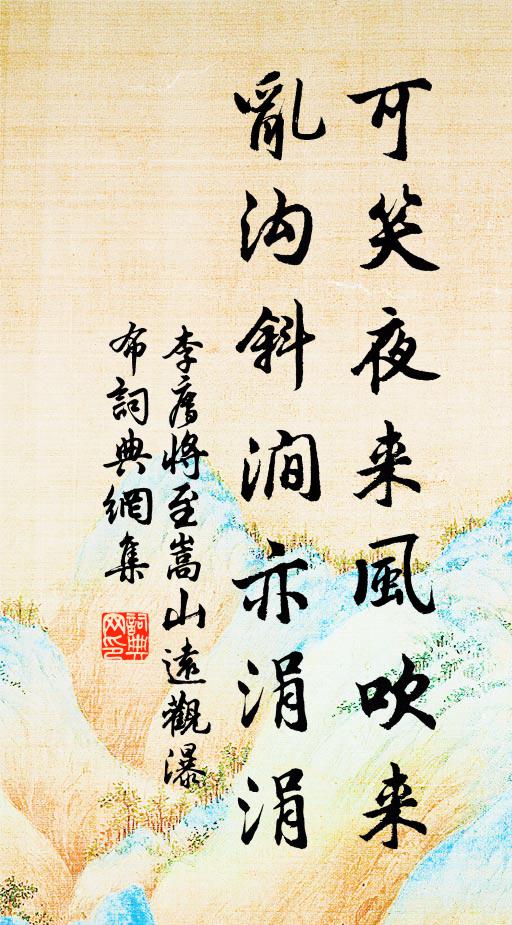 可笑夜来風吹来
亂沟斜澗亦涓涓
李廌將至嵩山遠觀瀑
布詞典網集
詞典
网印